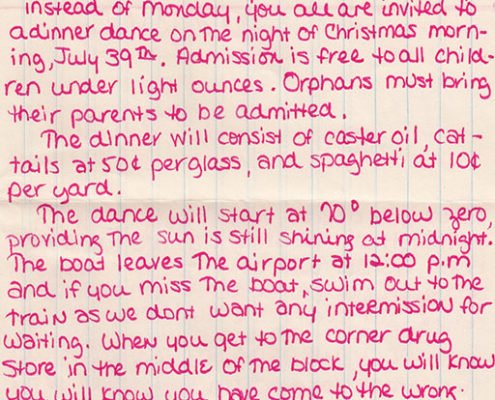 instead of Monday, you all are invited to
a dinner dance on the night of Christmas morn-
ing, July 39Th. Admission is free to all child-
ren under light ounces. Orphans must bring
their parents to be admitted.
The dinner will consist of caster oil, cat-
tails at 50¢ per glass, and spaghetti at 10¢
per yard.
The dance will start at 70° below zero,
providing The sun is still shining at midnight.
The boat leaves The airport at 12:00 p.m
and if you miss The boat, swim out to the
train as we dont want any intermission for
waiting. When you get to the corner drug
Store in the middle of The block, you will know
you will know you have come to the wrong